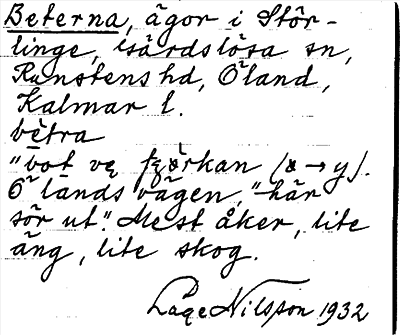 Beterna, ägor i Stör-
linge, Gärdslösa sn,
Runstens hd, Öland,
Kalmar l.
bètra
"bot vę
Ölands vägen, "här
sör ut". Mest åker, lite
äng, lite skog.
Låge Nilsson 1932